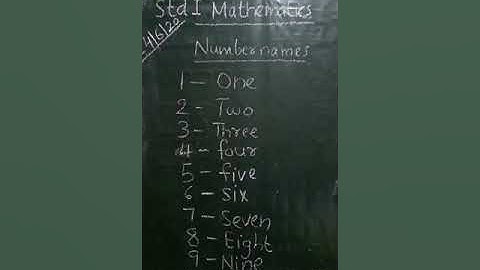 Std I Mathematics
4/6/20
Number names
1 - One
2 - Two
3 - Three
4 - four
5 - five
6 - six
7 - Seven
8 - Eight
9 - Nine